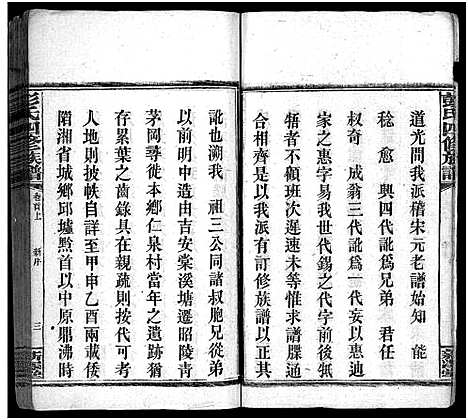 彭氏四修族譜
道光間我派稽宋元老譜始知 能
稔 愈 興四代訛為兄弟 君任
叔奇 成翁三代訛為一代妄以惠
家之惠字易我世錫之代字前後倒
牾者不顧班次遲速未等惟求譜牒通
合相齊是以我等有訂修族譜以正其
訛也溯我 祖三公同諸叔胞兄從弟
以前明中造吉安棠溪塘遷昭陵青
茅岡尋徙本鄉仁泉村當年之遺跡猶
存累葉之齒錄具在親疏則按代可考
人地則披帙自詳至甲申乙酉兩載倭
陷湘省城鄉邱墟黔首以中原鼎沸時
彭氏四修族譜
卷首上
新序
三